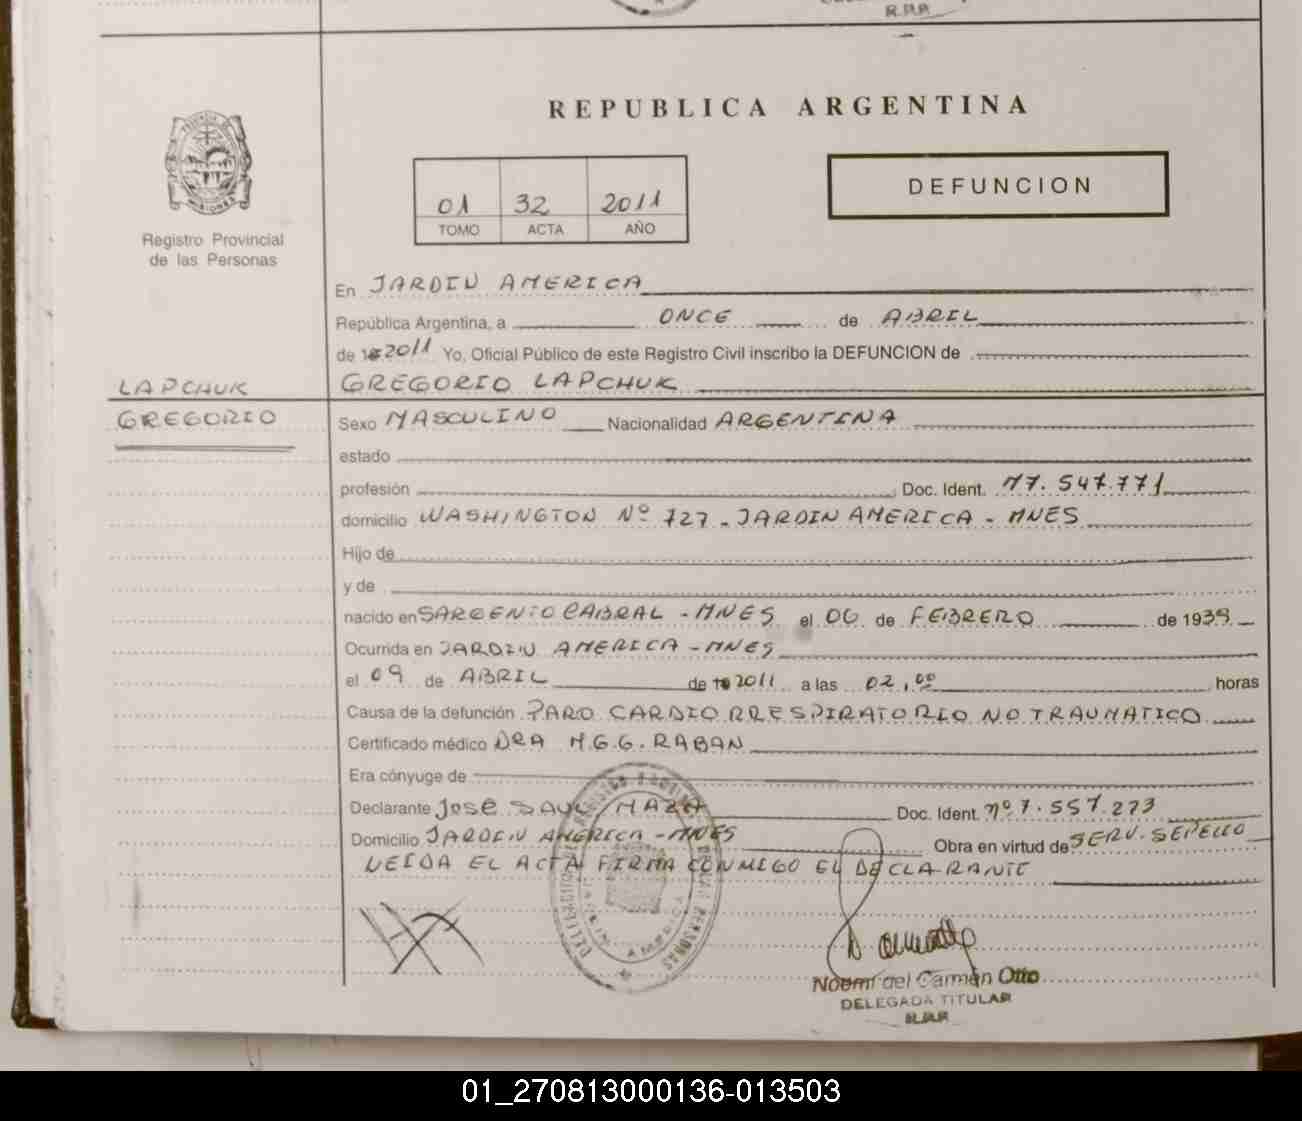 R.P.P.
REPUBLICA ARGENTINA
01 32 2011
TOMO ACTA AÑO
DEFUNCION
PROVINCIA DE
MISIONES
Registro Provincial
de las Personas
En JARDIN AMERICA
República Argentina, a ONCE de ABRIL
de 2011 Yo, Oficial Público de este Registro Civil inscribo la DEFUNCION de
LAPCHUK GREGORIO LAPCHUK
GREGORIO Sexo MASCULINO Nacionalidad ARGENTINA
estado
profesión Doc. Ident. M7.547.771
domicilio WASHINGTON Nº 727 - JARDIN AMERICA - MNES
Hijo de
y de
nacido en SARGENTO CABRAL - MNES el 06 de FEBRERO de 1939
Ocurrida en JARDIN AMERICA - MNES
el 09 de ABRIL de 2011 a las 02,00 horas
Causa de la defunción PARO CARDIORRESPIRATORIO NO TRAUMATICO
Certificado médico DRA M.G.G. RABAN
Era cónyuge de
Declarante JOSE SAUL MAZA Doc. Ident. nº 7.557.273
Domicilio JARDIN AMERICA - MNES Obra en virtud de SERV. SEPELIO
LEIDA EL ACTA FIRMA CONMIGO EL DECLARANTE
Noemí del Carmen Otto
DELEGADA TITULAR
R.P.P.
01_270813000136-013503